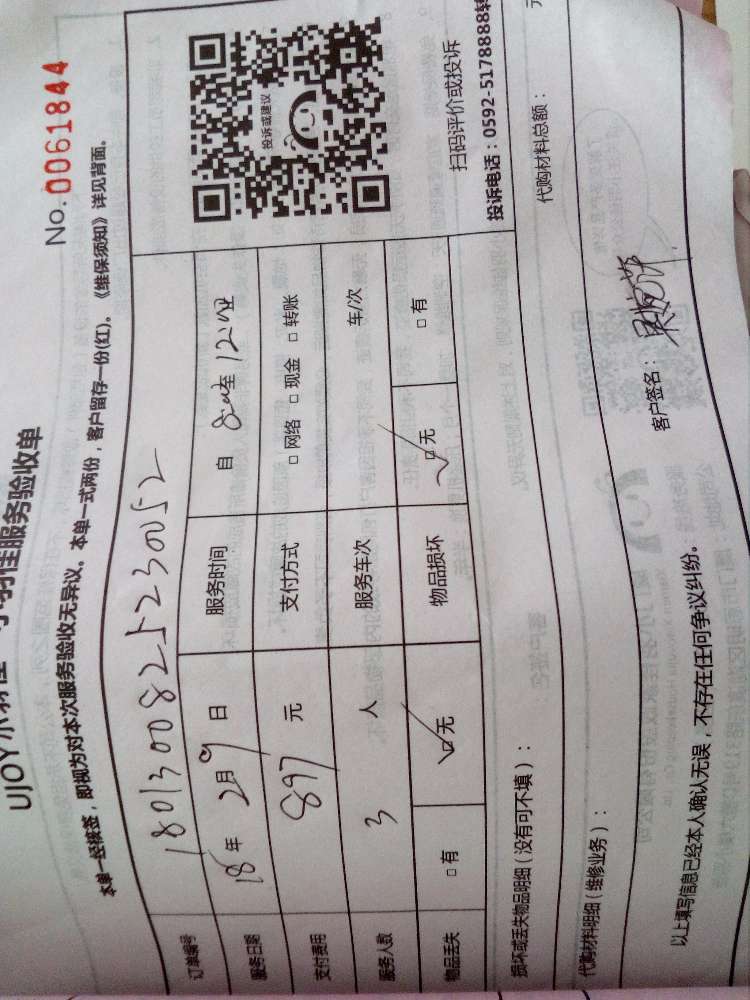 UJOY小羽佳 小羽佳服务验收单
No. 0061844
本单一经核签，即视为对本次服务验收无异议。本单一式两份，客户留存一份(红)。《维保须知》详见背面。
订单编号 180130082525230052
服务日期 18年 2月9日 服务时间 自 8:00至 12:00
支付费用 897 元 支付方式 □ 网络 □ 现金 □ 转账
服务人数 3 人 服务车次 车/次
物品丢失 □ 有 ☑ 无 物品损坏 ☑ 无 □ 有
投诉或建议
扫码评价或投诉
投诉电话：0592-5178888转
损坏或丢失物品明细（没有可不填）：
代购材料明细（维修业务）：
代购材料总额： 元
以上填写信息已经本人确认无误，不存在任何争议纠纷。
客户签名：